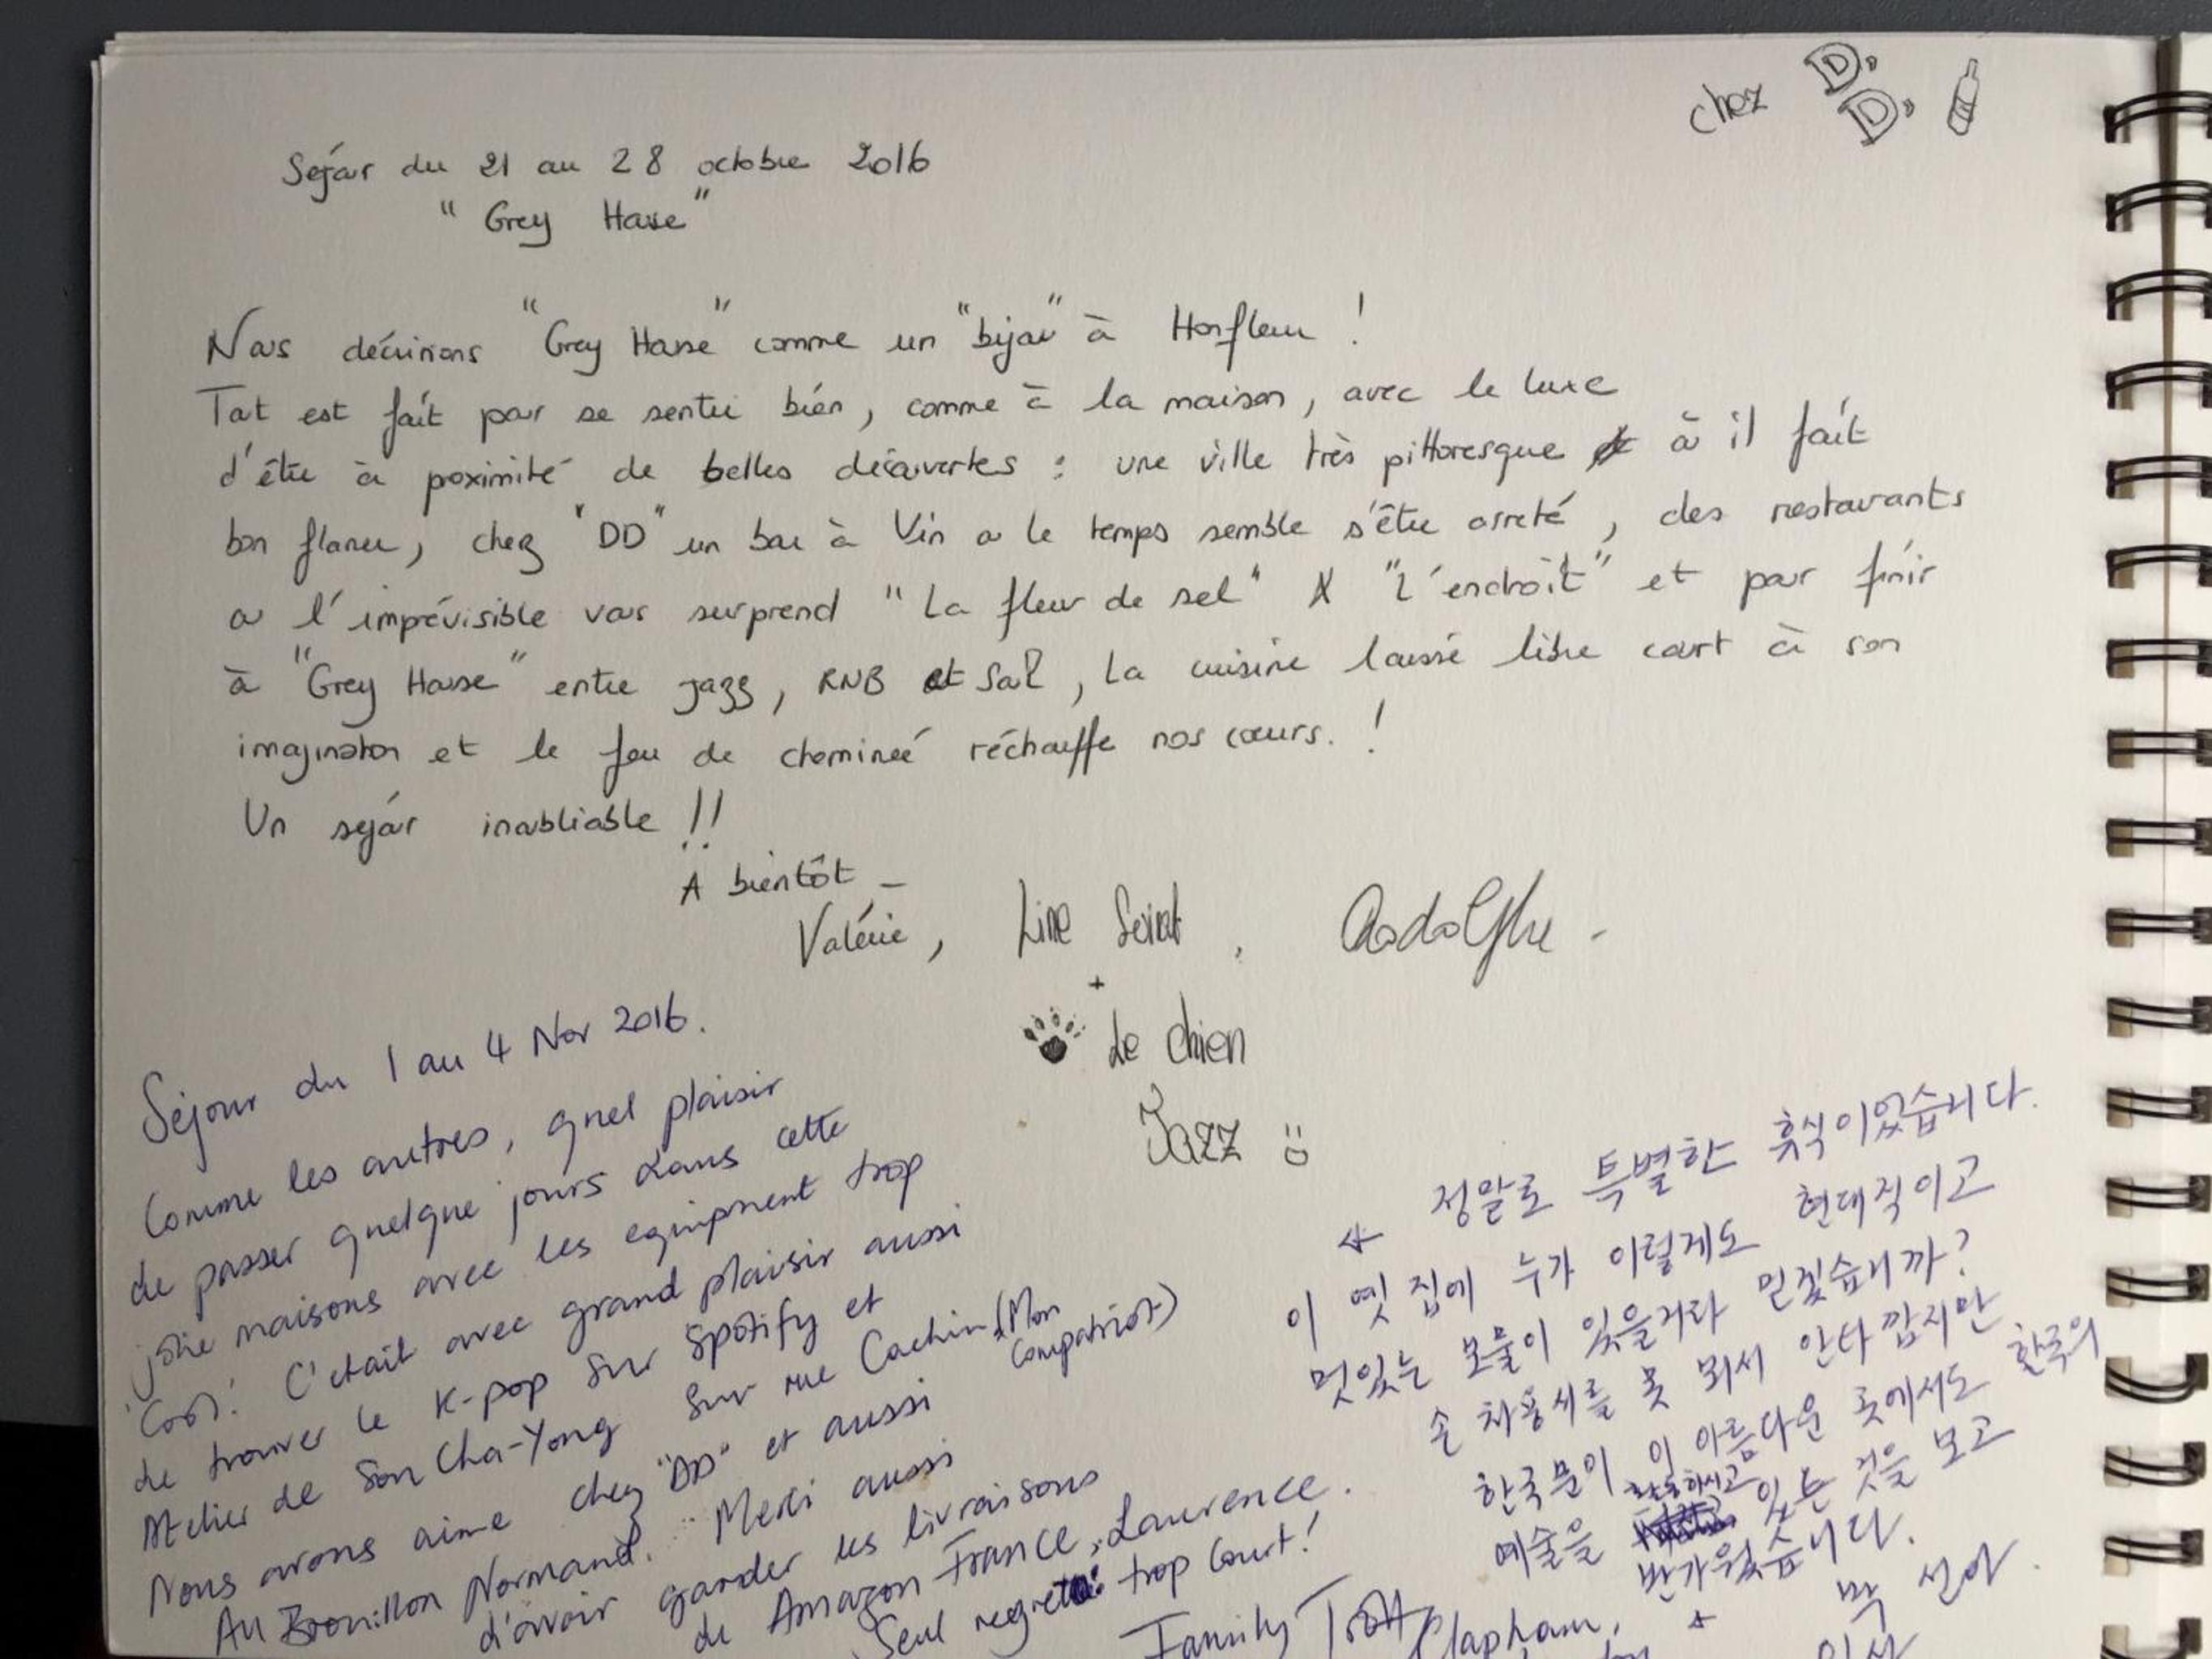 chez D.D.
Séjour du 21 au 28 octobre 2016
"Grey House"
Nous décririons "Grey House" comme un "bijou" à Honfleur !
Tout est fait pour se sentir bien, comme à la maison, avec le luxe
d'être à poximité de belles découvertes : une ville très pittoresque où il fait
bon flaner, chez "DD" un bar à Vin où le temps semble s'être arreté, des restaurants
où l'imprévisible vous surprend "La fleur de sel" "L'endroit" et pour finir
à "Grey House" entre jazz, RNB et Soul, la cuisine laissé libre court à son
imagination et le feu de cheminée réchauffe nos cœurs. !
Un séjour inoubliable !!
A bientôt _
Valérie, Line Rodolphe -
+
Le chien
Jazz
Séjour du 1 au 4 Nov 2016.
Comme les autres, quel plaisir
de passer quelque jours dans cette
jolie maisons avec les equipment trop
Cool! C'etait avec grand plaisir aussi
de trouver le K-pop sur Spotify et
Atelier de Son Cha-Yong sur rue Cachin (Mon Compatriot)
Nous avons aime chez "DD" et aussi
Au Brouillon Normand. Merci aussi
d'avoir garder les livraisons
de Amazon France, Laurence.
Seul regret: trop Court!
Family Trott Clapham,
정말로 특별한 휴식이었습니다.
이 옛 집에 누가 이렇게도 현대적이고
멋있는 보물이 있을거라 믿겠습니까?
손 차용씨를 못 뵈서 안타깝지만
한국분이 이 아름다운 곳에서도 한국의
예술을 활동하시고 있는 것을 보고
반가웠습니다.
박 선아.